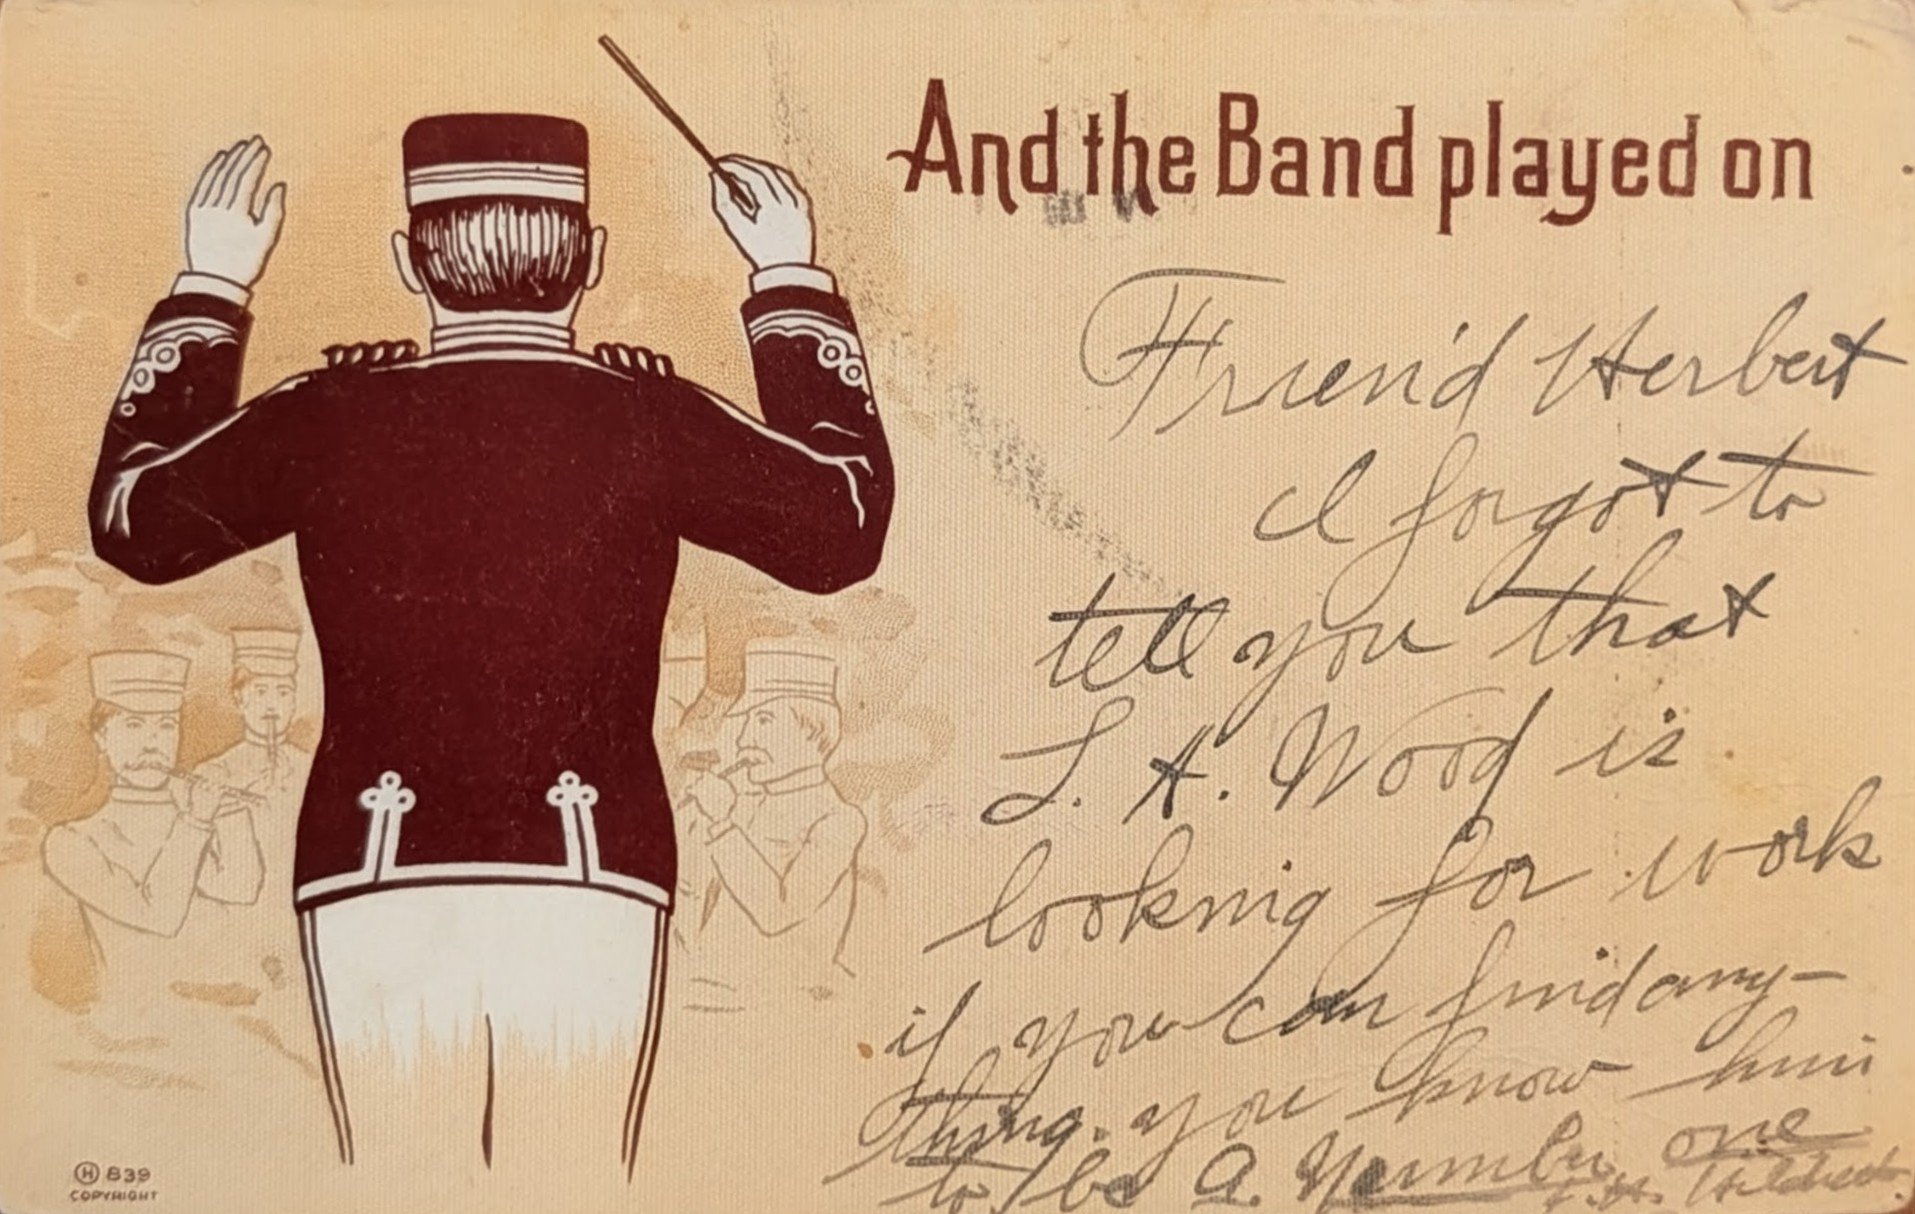 And the Band played on
Friend Herbert
I forgot to
tell you that
L. A. Wood is
looking for work
if you can find any-
thing. you know him
to be A. Number one
H 839
COPYRIGHT